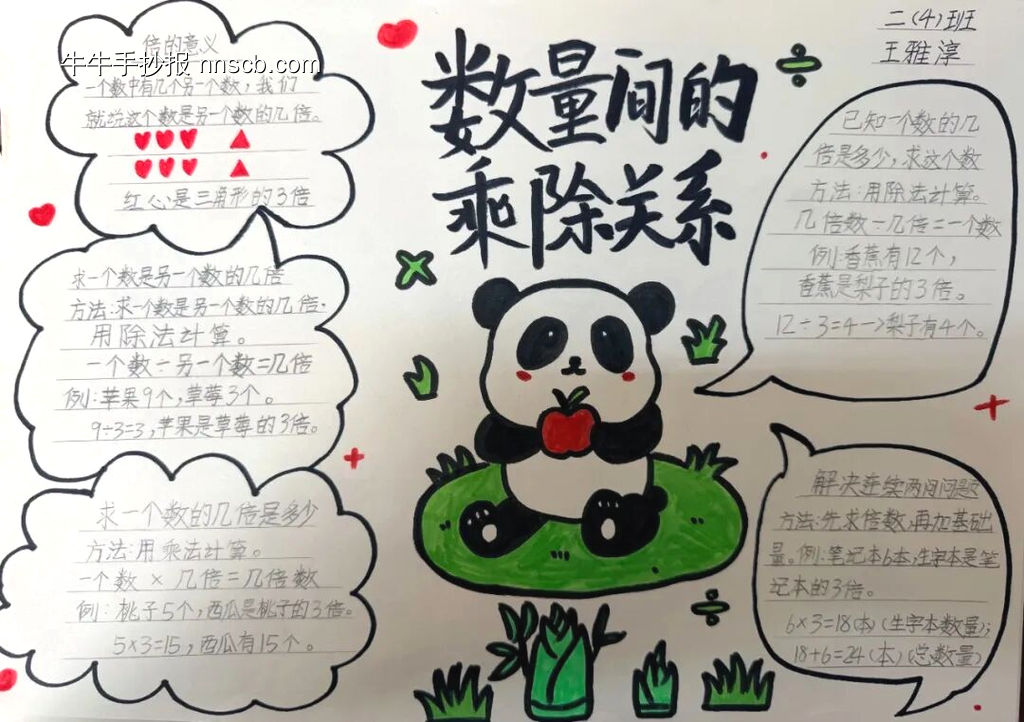 数量间的
乘除关系
二(4)班
王雅淳
倍的意义
牛牛手抄报 nnscb.com
一个数中有几个另一个数，我们
就说这个数是另一个数的几倍。
红心是三角形的3倍
求一个数是另一个数的几倍
方法:求一个数是另一个数的几倍，
用除法计算。
一个数÷另一个数=几倍
例:苹果9个,草莓3个。
9÷3=3,苹果是草莓的3倍。
求一个数的几倍是多少
方法:用乘法计算。
一个数 × 几倍=几倍数
例:桃子5个,西瓜是桃子的3倍。
5×3=15,西瓜有15个。
已知一个数的几
倍是多少,求这个数
方法:用除法计算。
几倍数÷几倍=一个数
例:香蕉有12个,
香蕉是梨子的3倍。
12÷3=4→梨子有4个。
解决连续两问问题
方法:先求倍数,再加基础
量。例:笔记本6本,生字本是笔
记本的3倍。
6×3=18(本)(生字本数量);
18+6=24(本)(总数量)